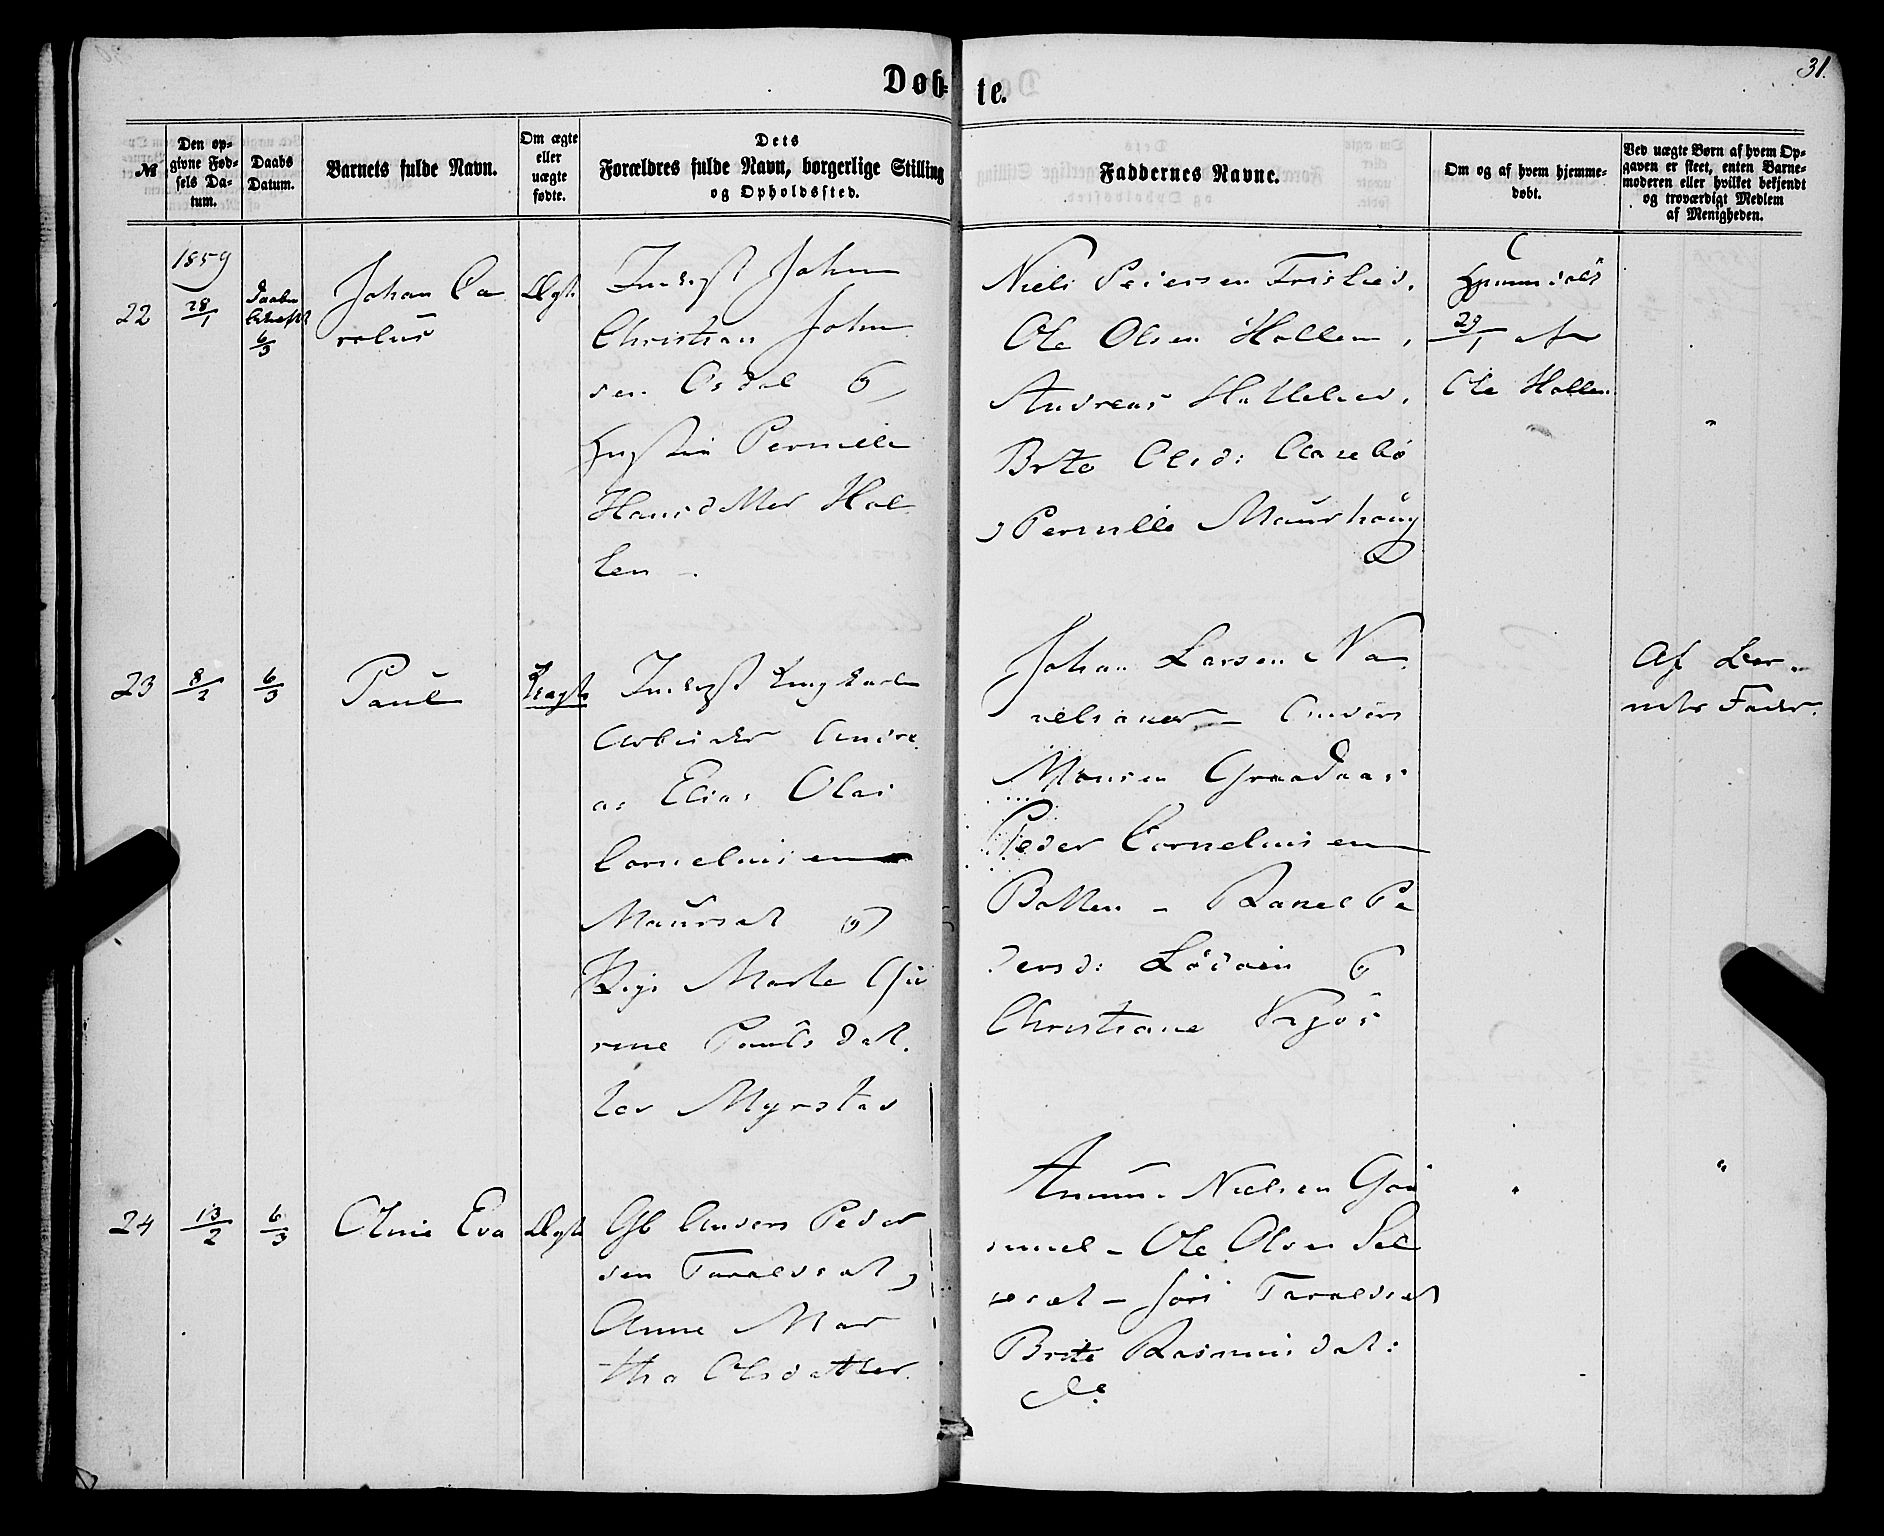 31.
Døb-
te.
№
Den op-
givne Fød-
sels Da-
tum.
Daabs
Datum.
Barnets fulde Navn.
Om ægte
eller
uægte
fødte.
Dets
Forældres fulde Navn, borgerlige Stilling
og Opholdssted.
Faddernes Navne.
Om og af hvem hjemme-
døbt.
Ved uægte Børn af hvem Op-
gaven er skeet, enten Barne-
moderen eller hvilket bekjendt
og troværdigt Medlem
af Menigheden.
1859
22
28/1
Daaben
6/3
Johan Ca
rolus
Ægte
Inderst Johan
Christian Johan
sen Osdal og
Hustru Pernille
Hansdatter Hol
len
Niels Petersen
Ole Olsen Hollen,
Andreas
Brite Olsd:
, Pernille Maurhaug
Hjemmedøbt
29/1 af
Ole Hollen
"
23
8/2
6/3
Paul
Uægte
Inderst Ungkarl
Arbeider Andre
as Elias Olai
Corneliusen
Maursæt og
Pige Marte Gu
rine Paulsdat
ter Myrstad
Johan Larsen
Anders
Monsen
Peder Corneliusen
Botten - Ranel Pe
dersd: Lødøen og
Christiane
Af Bar-
nets Fader.
24
13/2
6/3
Oline Eva
Ægte
Gb Anders Peder
sen Taraldset,
Anne Mar
tha Olsdatter.
Nielsen
Ole Olsen Sel
- Taraldset
Brite Rasmusdat:
do
"
"